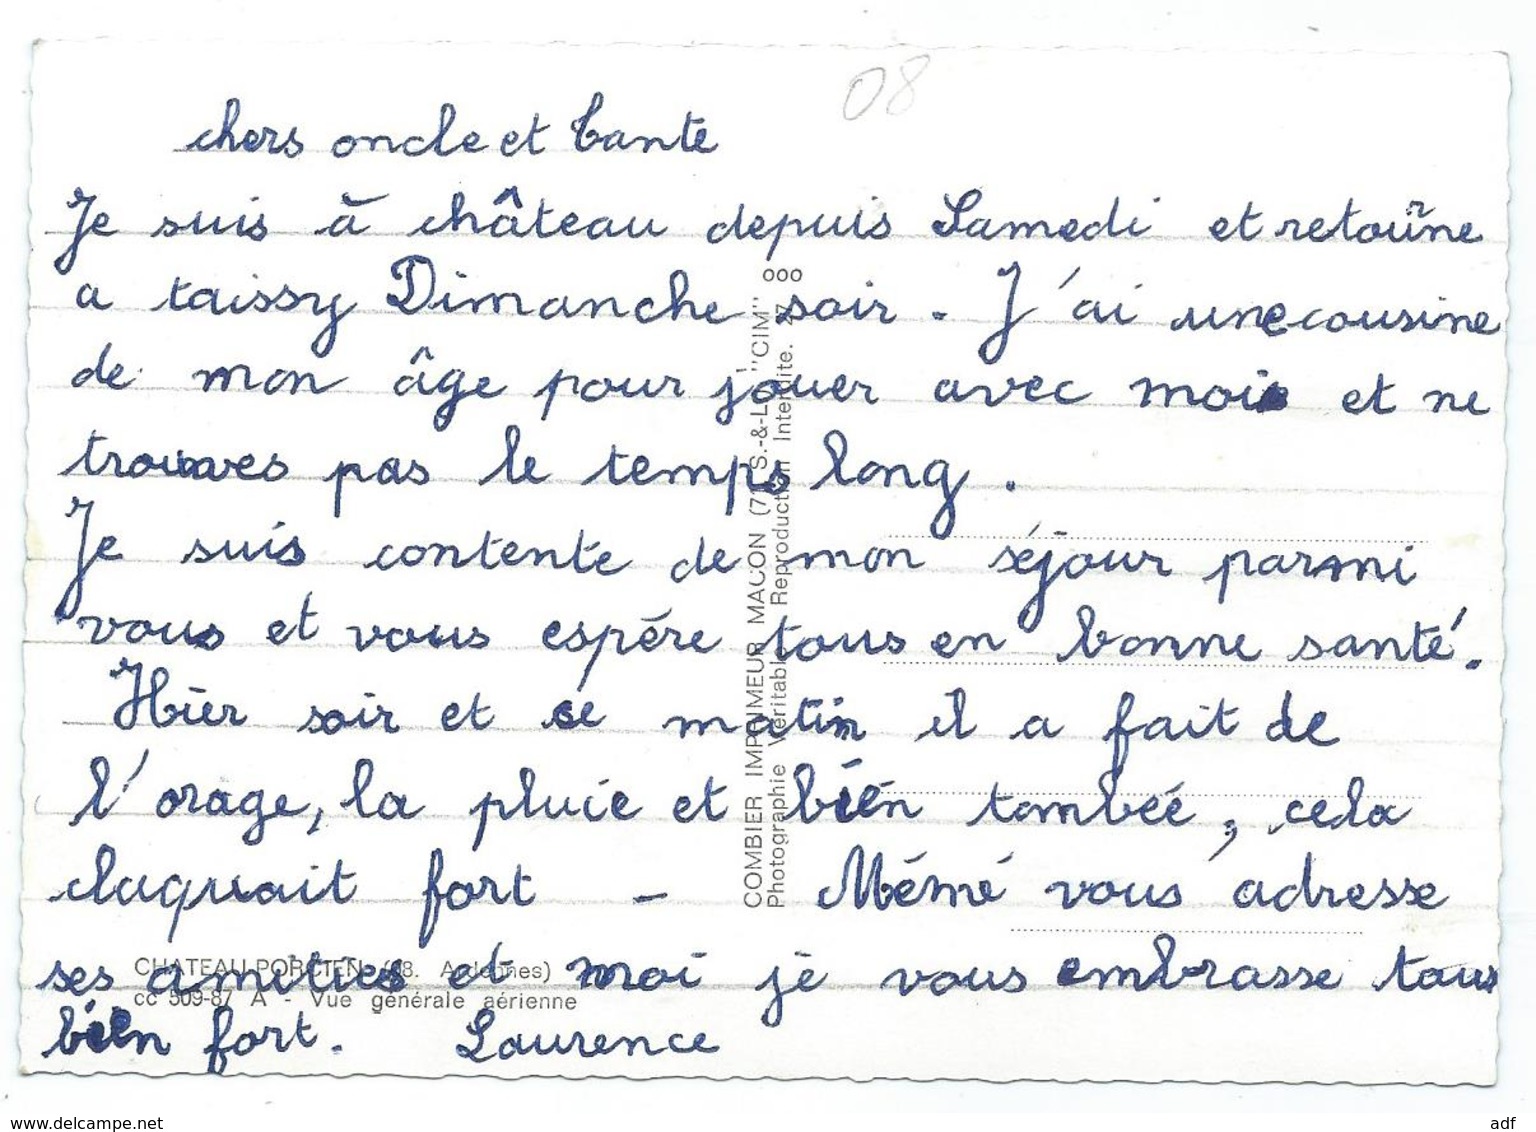 08
chers oncle et tante
Je suis à château depuis Samedi et retourne
a taissy Dimanche soir. J'ai une cousine
de mon âge pour jouer avec moi et ne
trouves pas le temps long.
Je suis contente de mon séjour parmi
vous et vous espére tous en bonne santé.
Hier soir et ce matin il a fait de
l'orage, la pluie et bien tombée, cela
claquait fort - Mémé vous adresse
ses amities et moi je vous embrasse tous
bien fort. Laurence
COMBIER IMPRIMEUR MACON (71 S.-&-L.) "CIM" ooo
Photographie Véritable. Reproduction Interdite.
CHATEAU-PORCIEN (08. Ardennes)
cc 509-87 A - Vue générale aérienne
www.delcampe.net
adf